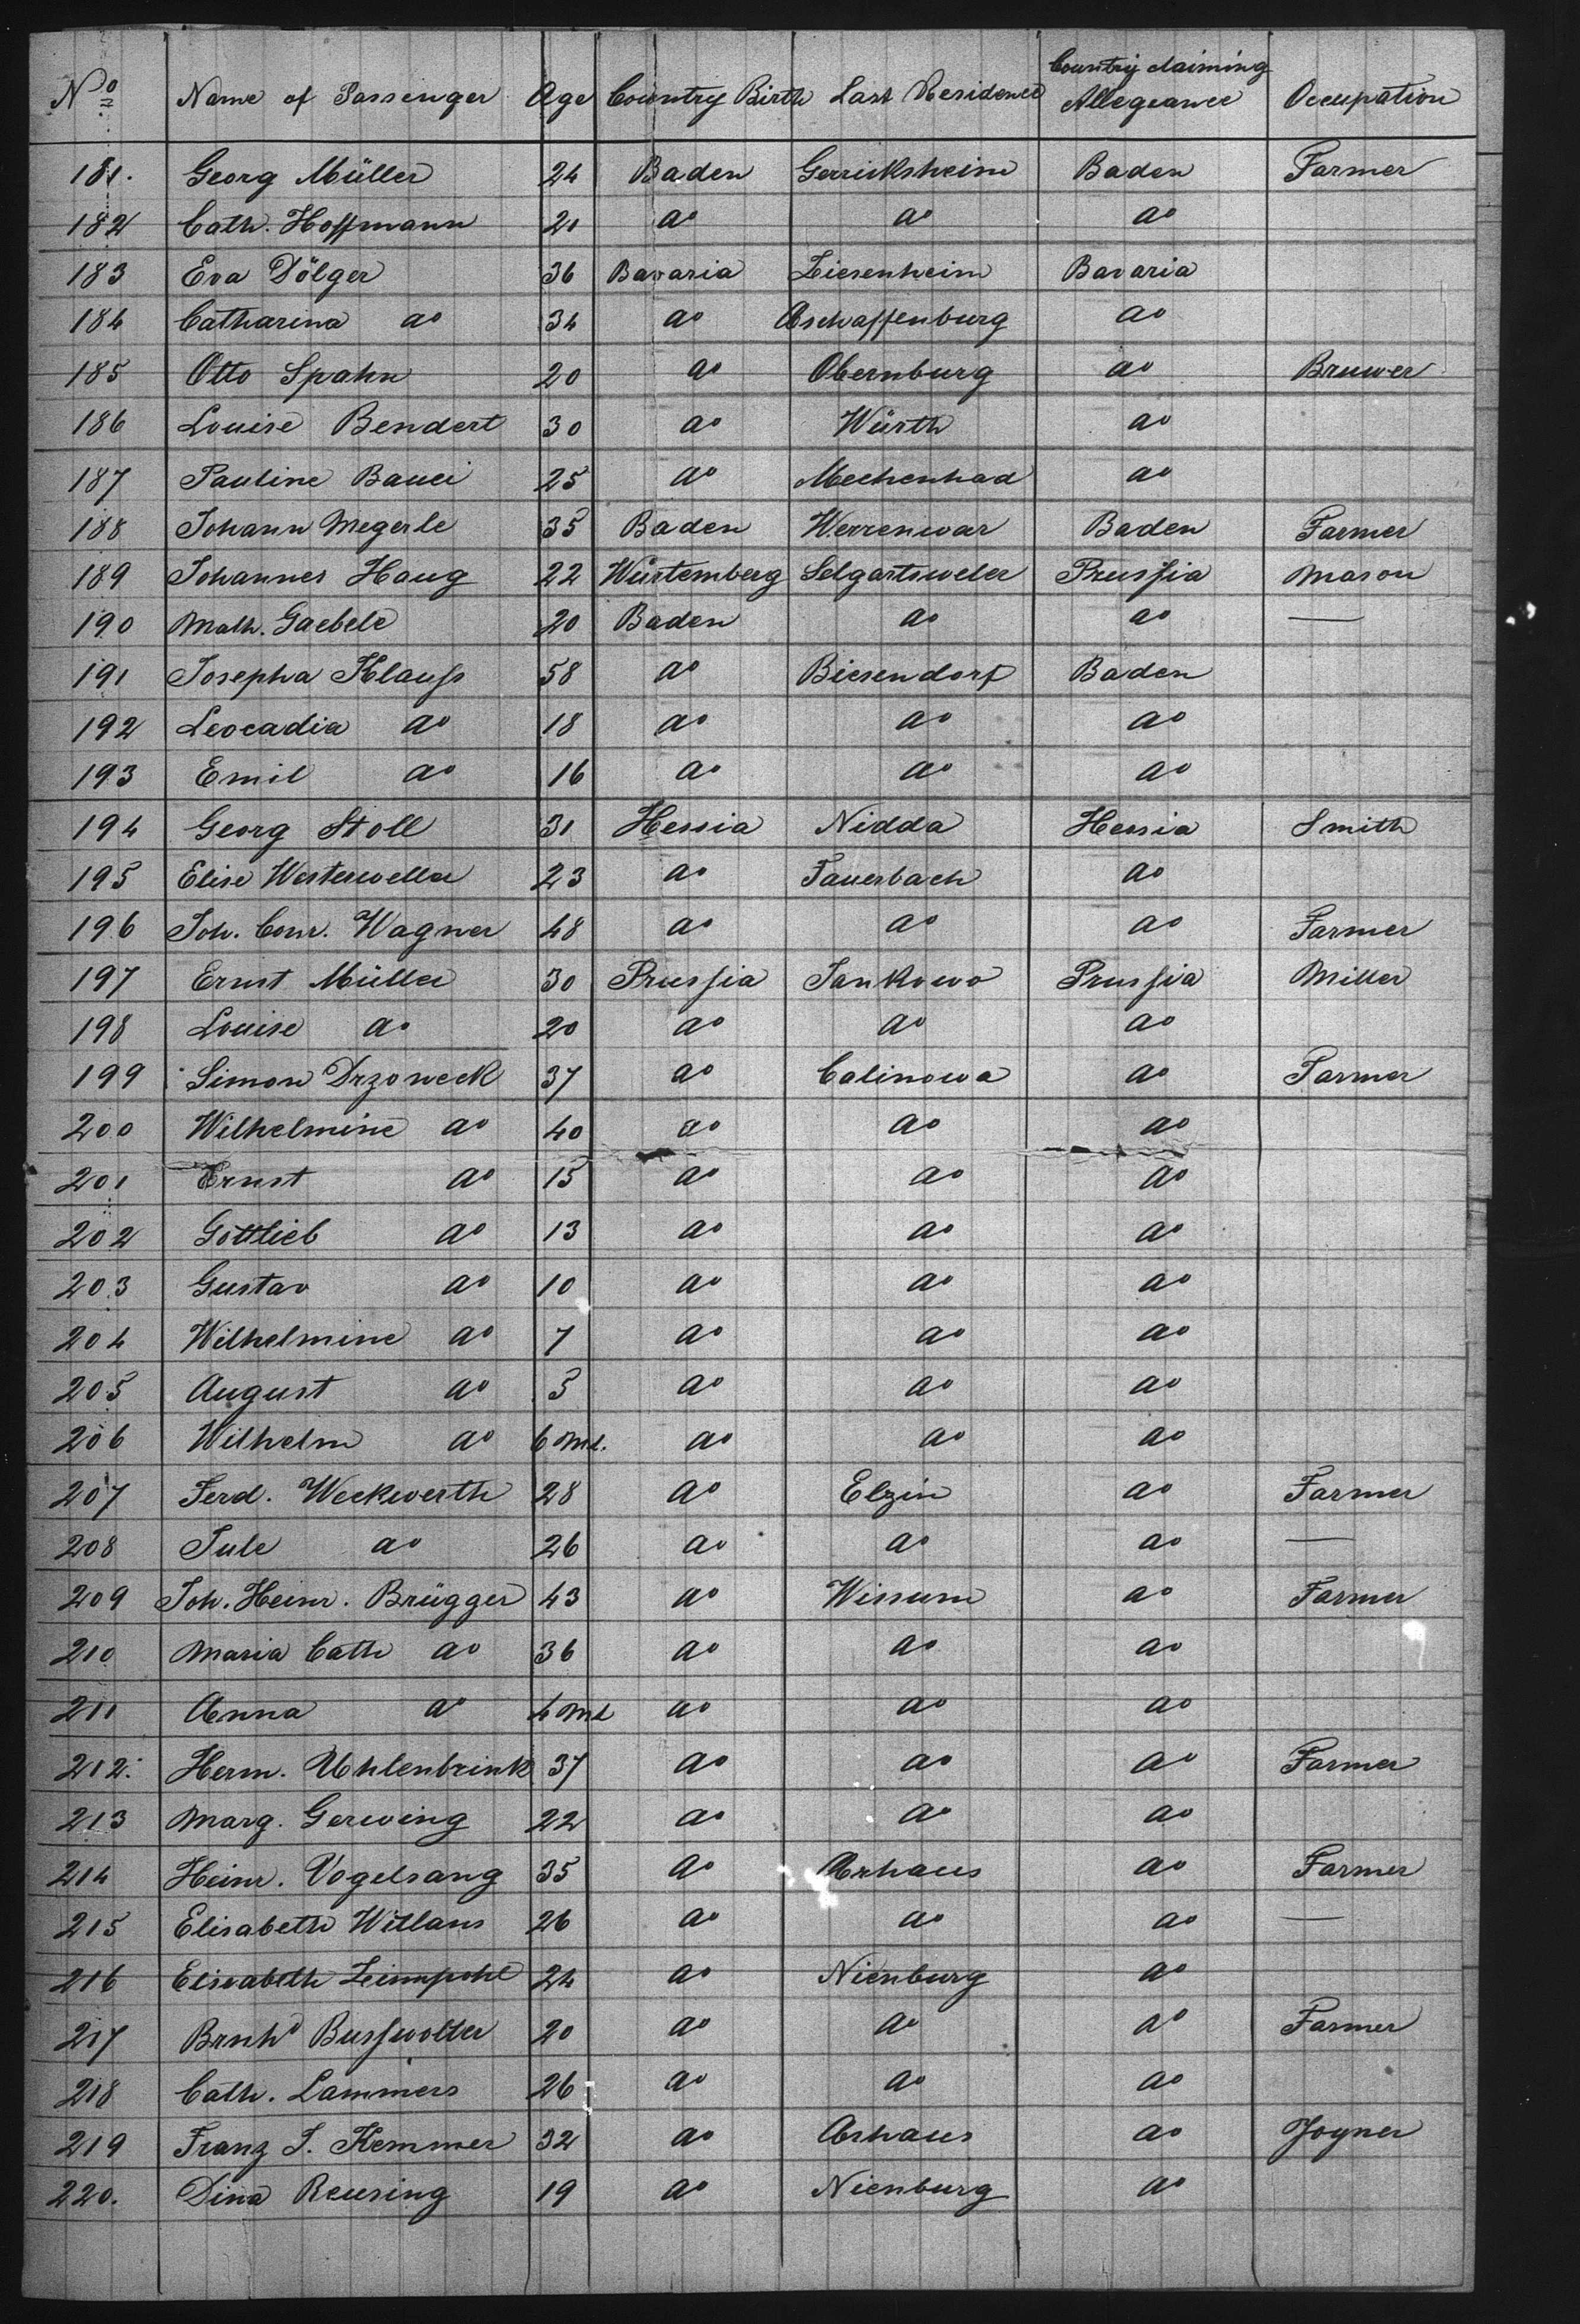 No Name of Passenger Age Country Birth Last Residence Country claiming Allegeance Occupation
181. Georg Müller 24 Baden Gerricksheim Baden Farmer
182 Cath. Hoffmann 21 do do do
183 Eva Dölger 36 Bavaria Ziesenheim Bavaria
184 Catharina do 34 do Aschaffenburg do
185 Otto Spahn 20 do Obernburg do Bruwer
186 Louise Bendert 30 do Würth do
187 Pauline Bauei 25 do Mechenhad do
188 Johann Megerle 35 Baden Werrenwar Baden Farmer
189 Johannes Haug 22 Würtemberg Selgartsweler Prussia Mason
190 Math. Gaebele 20 Baden do do —
191 Josepha Klauss 58 do Biesendorf Baden
192 Leocadia do 18 do do do
193 Emil do 16 do do do
194 Georg Stoll 31 Hessia Nidda Hessia Smith
195 Elise Westerweller 23 do Fauerbach do
196 Joh. Conr. Wagner 48 do do do Farmer
197 Ernst Müller 30 Prussia Jankowo Prussia Miller
198 Louise do 20 do do do
199 Simon Drzoweck 37 do Calinowa do Farmer
200 Wilhelmine do 40 do do do
201 Ernst do 15 do do do
202 Gottlieb do 13 do do do
203 Gustav do 10 do do do
204 Wilhelmine do 7 do do do
205 August do 5 do do do
206 Wilhelm do 6 Mt. do do do
207 Ferd. Weckwerth 28 do Elzin do Farmer
208 Jule do 26 do do do —
209 Joh. Heinr. Brügger 43 do Wissum do Farmer
210 Maria Cath do 36 do do do
211 Anna do 4 Mt do do do
212. Herm. Uhlenbrink 37 do do do Farmer
213 Marg. Gerwing 22 do do do
214 Heinr. Vogelsang 35 do Arhaus do Farmer
215 Elisabeth Witlans 26 do do do —
216 Elisabeth Zeimpohl 24 do Nienburg do
217 Brnhd Busswolter 20 do do do Farmer
218 Cath. Lammers 26 do do do
219 Franz J. Kemmer 32 do Arhaus do Joyner
220. Dina Reusing 19 do Nienburg do